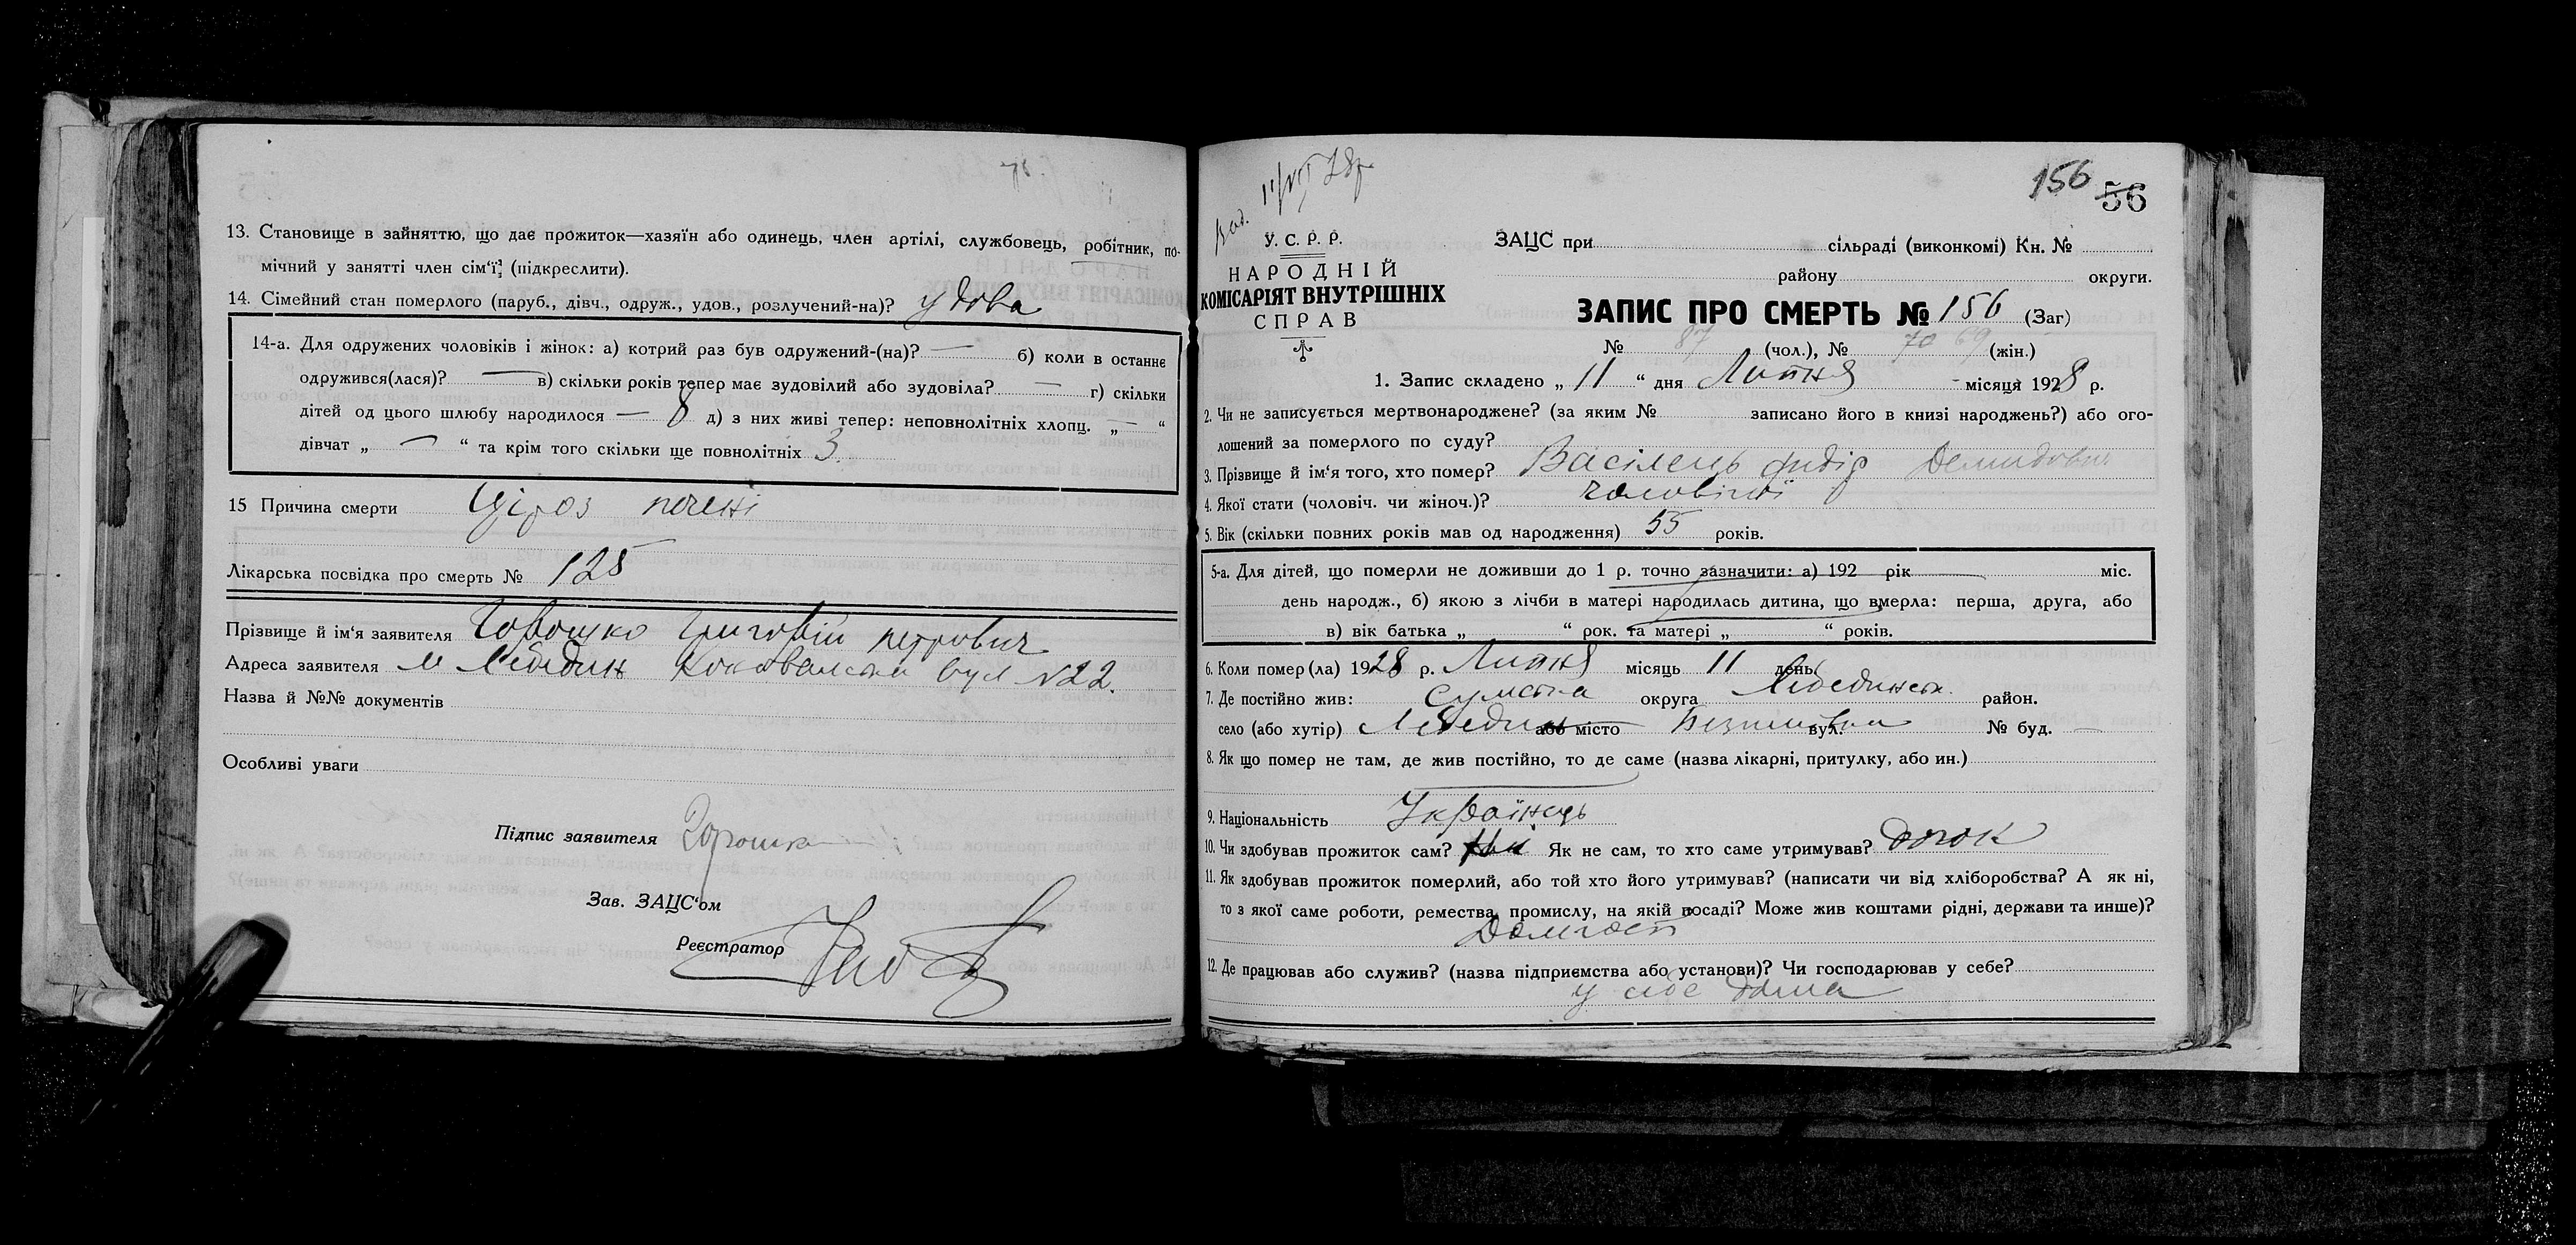 13. Становище в зайняттю, що дає прожиток—хазяїн або одинець, член артілі, службовець, робітник, по-
мічний у занятті член сім‘ї, (підкреслити).
14. Сімейний стан померлого (паруб., дівч., одруж., удов., розлучений-на)? удова
14-а. Для одружених чоловіків і жінок: а) котрий раз був одружений-(на)? — б) коли в останнє
одружився(лася)? — в) скільки років тепер має зудовілий або зудовіла? — г) скільки
дітей од цього шлюбу народилося — 8 д) з них живі тепер: неповнолітніх хлопц. „ — “
дівчат „ — “ та крім того скільки ще повнолітніх 3
15 Причина смерти Ціроз печені
Лікарська посвідка про смерть № 125
Прізвище й ім‘я заявителя Горошко Григорій петрович
Адреса заявителя м Лебедин вул N22.
Назва й №№ документів
Особливі уваги
Підпис заявителя Горошко
Зав. ЗАЦС‘ом
Реєстратор
156 56
11/VII 28р
У. С. Р. Р.
НАРОДНІЙ
КОМІСАРІЯТ ВНУТРІШНІХ
СПРАВ
ЗАЦС при сільраді (виконкомі) Кн. №
району округи.
ЗАПИС ПРО СМЕРТЬ № 156 (Заг)
№ 87 (чол.), № 70 69 (жін.)
1. Запис складено „ 11 “ дня Липня місяця 1928 р.
2. Чи не записується мертвонароджене? (за яким № записано його в книзі народжень?) або ого-
лошений за померлого по суду?
3. Прізвище й ім‘я того, хто помер? Васілець Фидір Демидович
4. Якої стати (чоловіч. чи жіноч.)? чоловічої
5. Вік (скільки повних років мав од народження) 55 років.
5-а. Для дітей, що померли не доживши до 1 р. точно зазначити: а) 192 рік міс.
день народж., б) якою з лічби в матері народилась дитина, що вмерла: перша, друга, або
в) вік батька „ “ рок. та матері „ “ років.
6. Коли помер (ла) 1928 р. Липня місяць 11 день
7. Де постійно жив: Сумська округа Лебединськ. район.
село (або хутір) Лебедин або місто вул. № буд. —
8. Як що помер не там, де жив постійно, то де саме (назва лікарні, притулку, або ин.)
9. Національність Українець
10. Чи здобував прожиток сам? Ні Як не сам, то хто саме утримував? дочок
11. Як здобував прожиток померлий, або той хто його утримував? (написати чи від хліборобства? А як ні,
то з якої саме роботи, ремества, промислу, на якій посаді? Може жив коштами рідні, держави та инше)?
12. Де працював або служив? (назва підприємства або установи)? Чи господарював у себе?
у себе дома